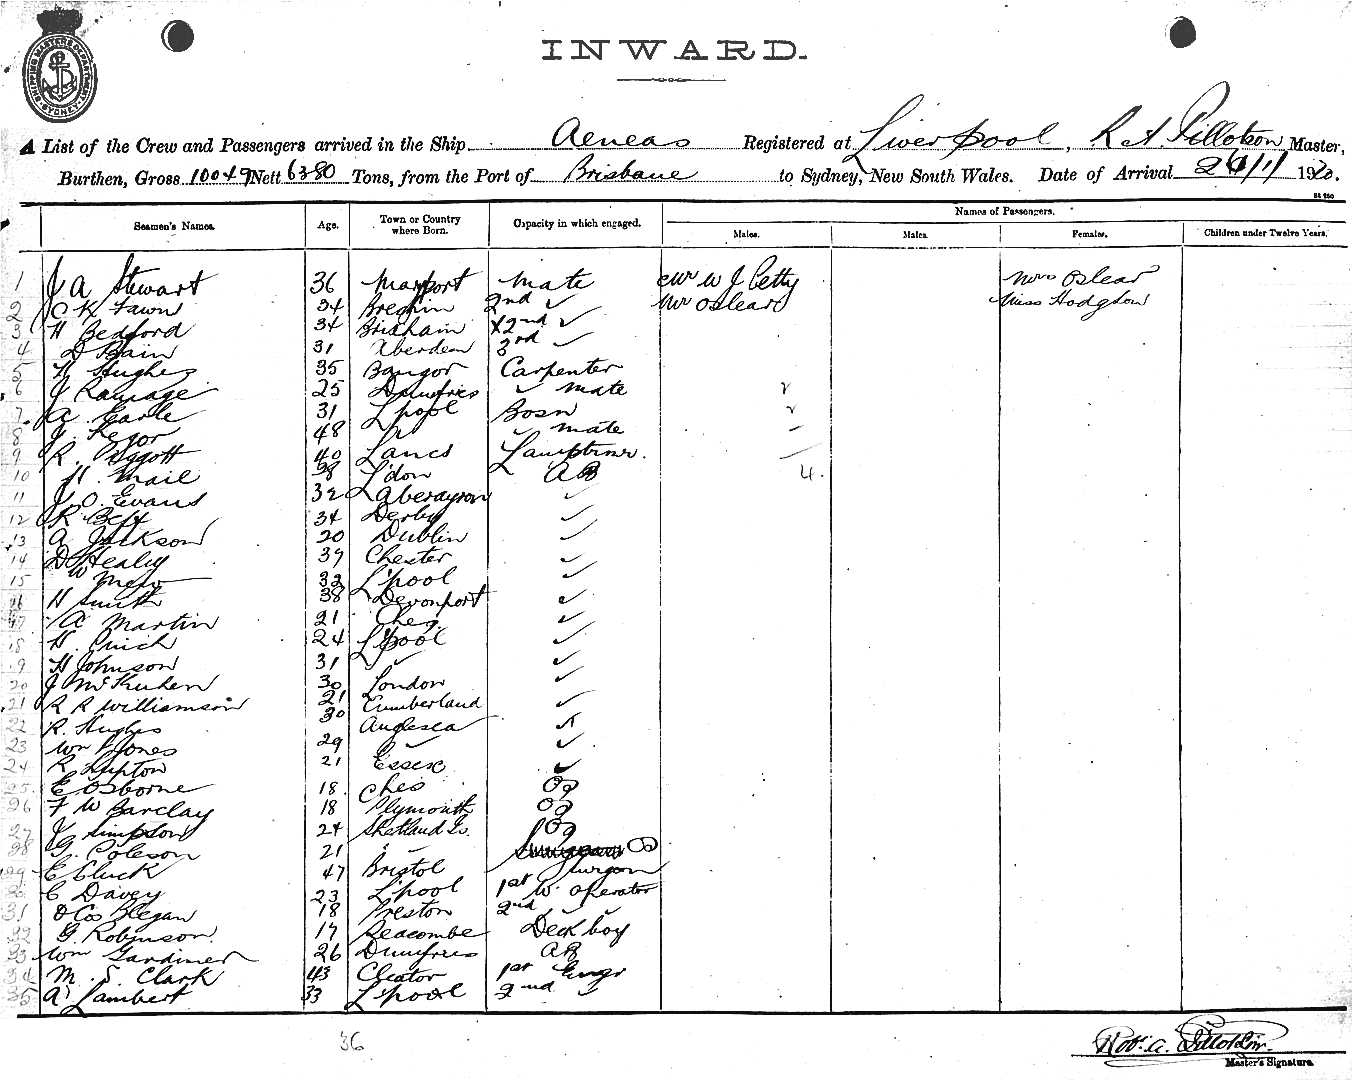 SHIPPING MASTERS DEPARTMENT SYDNEY
INWARD.
A List of the Crew and Passengers arrived in the Ship Aeneas Registered at Liverpool, R A Tillotson Master,
Burthen, Gross 10049 Nett 6380 Tons, from the Port of Brisbane to Sydney, New South Wales. Date of Arrival 1920.
Seamen's Names. Age. Town or Country where Born. Capacity in which engaged. Names of Passengers.
Males. Males. Females. Children under Twelve Years.
1 J A Stewart 36 Maryport Mate Mr W J Petty Mrs Oslear
2 C K Fawn 34 Brechin 2nd ✓ Mr Oslear Miss Hodgson
3 H Bedford 34 Brixham X2nd ✓
4 D Bain 31 Aberdeen 3rd ✓
5 H Hughes 35 Bangor Carpenter
6 J Ramage 25 Dumfries ✓ mate
7 A Earle 31 L'pool Bosn
8 J 48 mate
9 R Piggott 40 Lancs Lamptrmr.
10 H. Mail 28 L'don AB 4.
11 J. O. Evans 32 Aberayron ✓
12 R Bett 34 Derby ✓
13 A Jackson 20 Dublin ✓
14 D Healey 39 Chester ✓
15 W 32 L'pool ✓
16 H Smith 38 Devonport ✓
17 A Martin 21 Ches. ✓
18 H. Finch 24 L'pool ✓
19 H Johnson 31 ✓ ✓
20 J 30 London ✓
21 R R Williamson 21 Cumberland ✓
22 R. Hughes 30 Anglesea
23 Wm Jones 29 ✓ ✓
24 R Lupton 21 Essex ✓
25 E Osborne 18. Ches
26 F W Barclay 18 Plymouth
27 J Simpson 24 Shetland Is.
28 G. Coleson 21
29 E Cluck 47 Bristol Surgeon
C Davey 23 L'pool 1st W. operator
31 18 Preston 2nd ✓ ✓
G. Robinson. 17 Seacombe Deck boy
33 Wm Gardiner 26 Dumfries AB
34 M. S. Clark 43 Cleator 1st Engr
35 A. Lambert 33 L'pool 2nd ✓
36
Robt. A. Tillotson.
Master's Signature.